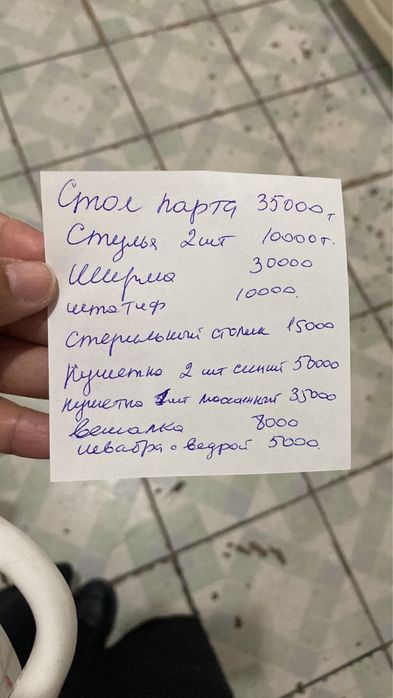 Стол парта 35000т
Стулья 2шт 10000т.
Ширма 30000
штатиф 10000.
стерильный столик 15000
кушетка 2 шт синий 50000
кушетка 1шт массажный 35000
вешалка 8000
швабра с ведрой 5000.